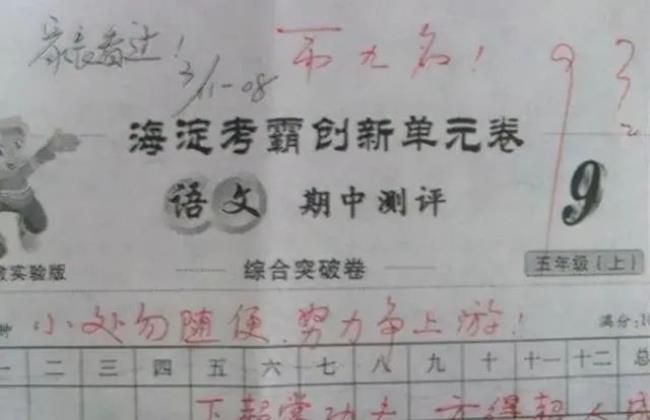 家长看过！
3/11-08
第九名！
93
海淀考霸创新单元卷
语文 期中测评
9
实验版
综合突破卷
五年级(上)
小处勿随便，努力争上游！
满分:1
一 二 三 四 五 六 七 八 九 十 十一 十二 总
下